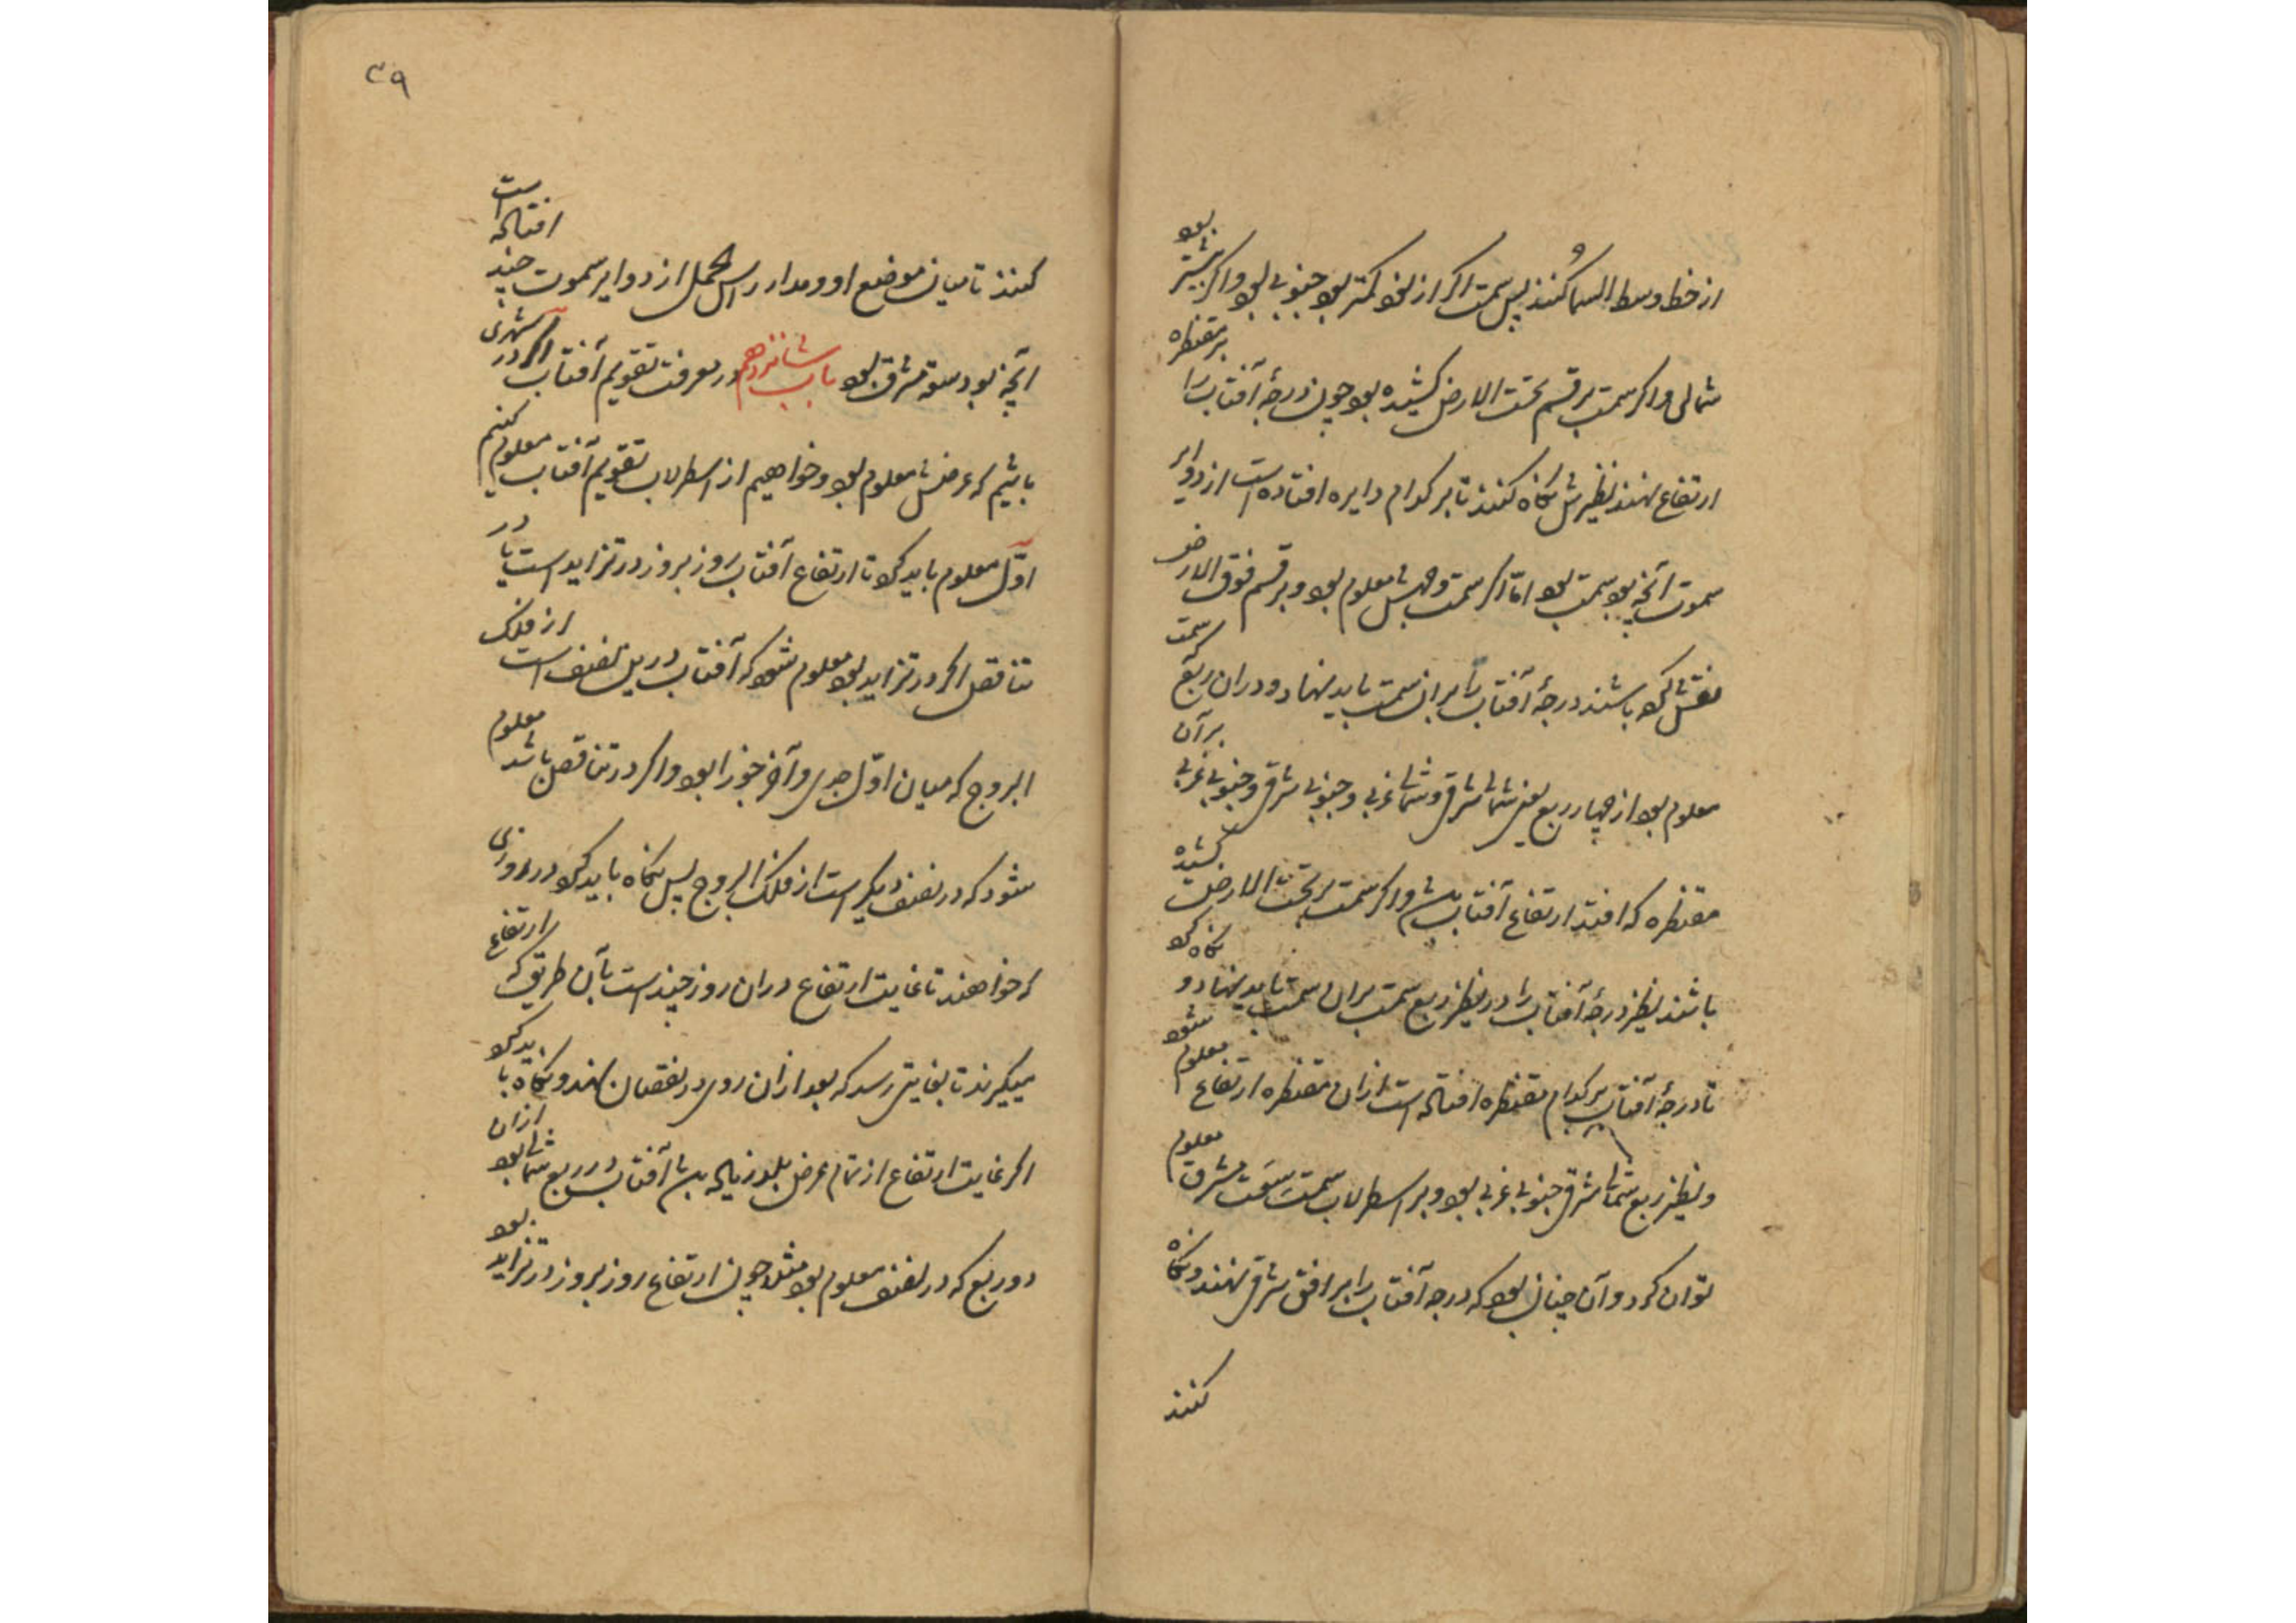 از خط وسط السما کنند پس سمت اگر از نود کمتر بود جنوبی بود و اگر بیشتر بود
شمالی و اگر سمت بر قسم تحت الارض کشیده بود چون درجهٔ آفتاب را بر مقنطره
ارتفاع نهند نظیرش نگاه کنند تا بر کدام دایره افتاده است از دوایر
سموت آنچه بود سمت بود اما اگر سمت و جهتش معلوم بود و بر قسم فوق الارض
نقش کرده باشند درجهٔ آفتاب را بر ان سمت باید نهاد و دران ربع که سمت
معلوم بود از چهار ربع یعنی شمالی شرقی و شمالی غربی و جنوبی شرقی و جنوبی غربی بر آن
مقنطره که افتد ارتفاع آفتاب باشد و اگر سمت بر تحت الارض کشیده
باشند نظیر درجهٔ آفتاب را در نظیر ربع سمت بران سمت باید نهاد و نگاه کرد
تا درجهٔ آفتاب بر کدام مقنطره افتاده است ازان مقنطره ارتفاع معلوم شود
و نظیر ربع شمالی شرقی جنوبی غربی بود و بر اسطرلاب سمت سَعَت مشرق معلوم
توان کرد و آن چنان بود که درجه آفتاب را بر افق شرقی نهند و نگاه
کنند
٣٩
کنند تا میان موضع او و مدار راس الحمل از دوایر سموت چند افتاده است
آنچه بود سعة مشرق بود باب شانزدهم در معرفت تقویم آفتاب اگر در شهری
باشیم که عرضش معلوم بود و خواهیم از اسطرلاب تقویم آفتاب معلوم کنیم
اوّل معلوم باید کرد تا ارتفاع آفتاب روز بروز در تزاید است یا در
تناقص اگر در تزاید بود معلوم شود که آفتاب دریں نصف است از فلک
البروج که میان اوّل جدی و آخر جوزا بود و اگر در تناقص باشد معلوم
شود که در نصف دیگر است از فلک البروج پس نگاه باید کرد در روزی
که خواهند تا غایت ارتفاع دران روز چند است بآن طریق که ارتفاع
میگیرند تا بغایتی رسد که بعد ازان روی در نقصان نهد و نگاه باید کرد
اگر غایت ارتفاع از تمام عرض بلد زیاده باشد آفتاب در ربع شمالی بود ازان
دو ربع که در نصف معلوم بود مثلا چون ارتفاع روز بروز در تزاید بود